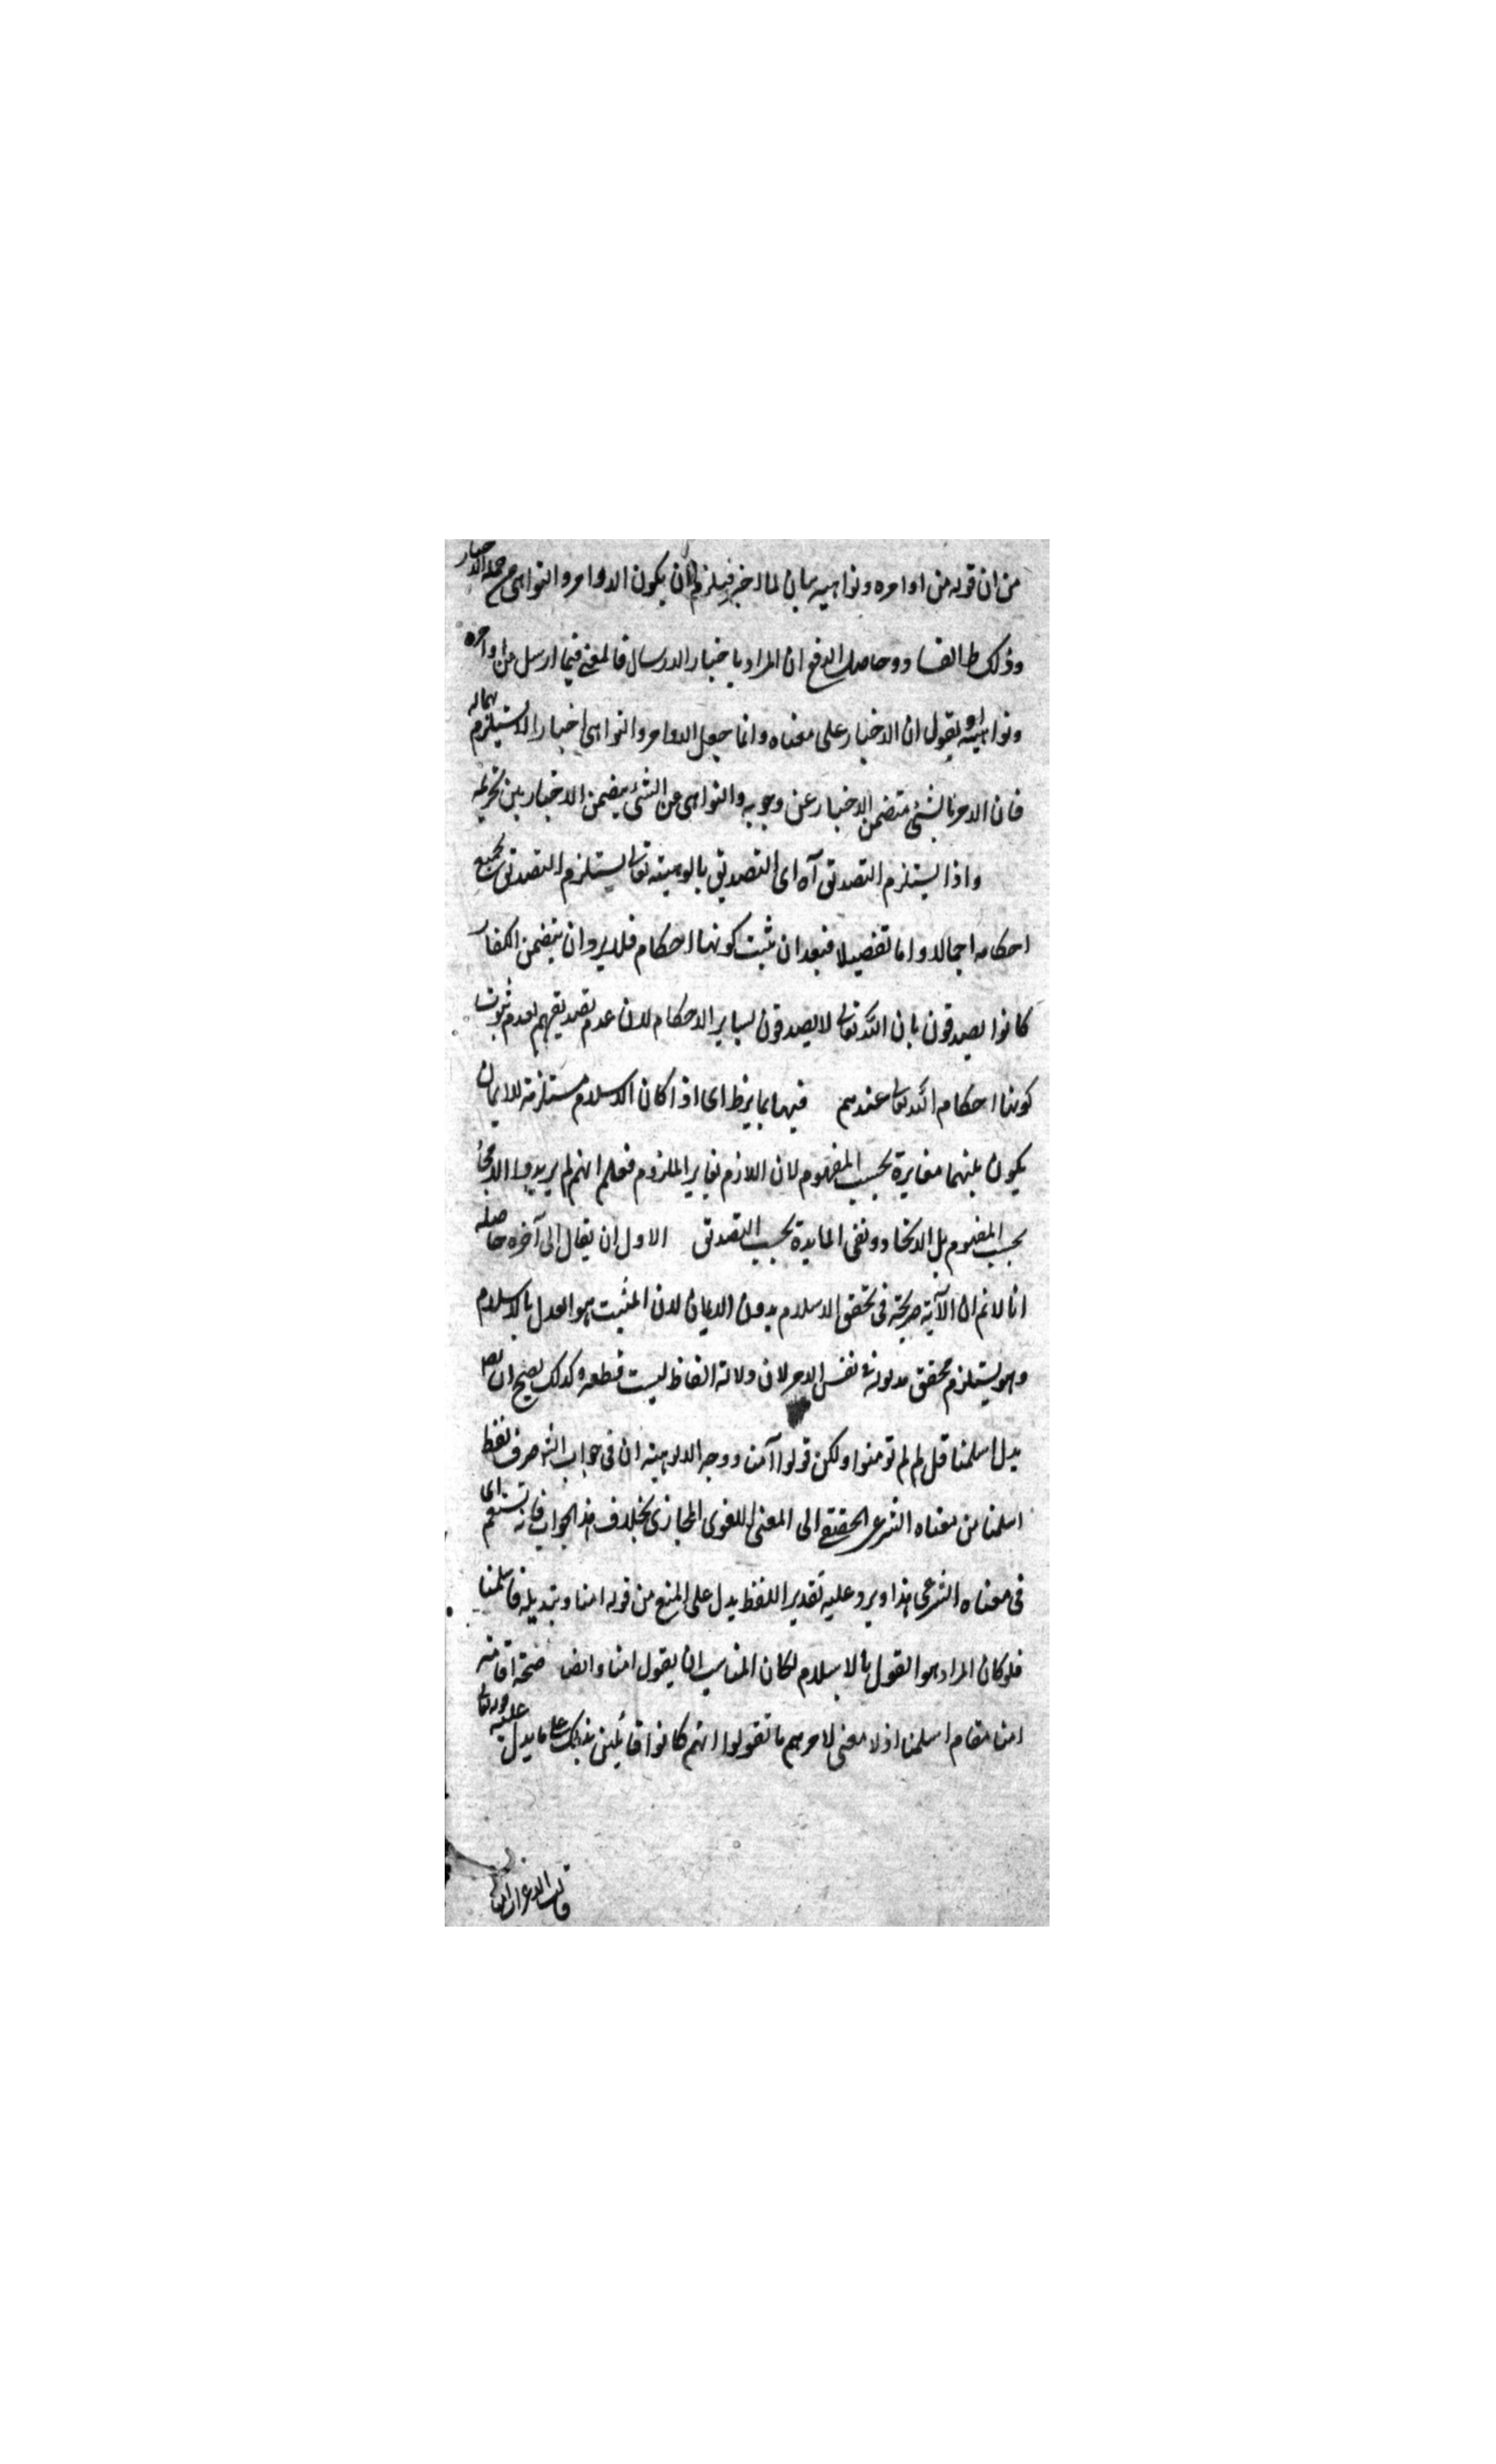 من ان قوله من اوامره ونواهيه بيان لما اخبر فيلزم ان يكون الاوامر والنواهى من جملة الاخبار
وذلك ظ الفساد وحاصل الدفع ان المراد باخبار الارسال فالمعنى فيما ارسل من اوامره
ونواهيه او يقول ان الاخبار على معناه وانما جعل الاوامر والنواهى اخبار الاستلزامهما له
فان الامر بالشئ متضمن الاخبار عن وجوبه والنواهى عن الشئ يتضمن الاخبار عن تحريمه
واذا يستلزم التصديق آه اى التصديق بالوهيته تعالى يستلزم التصديق بجميع
احكامه اجمالا واما تفصيلا فبعد ان ثبت كونها احكام فلا يرد ان بعض من الكفار
كانوا يصدقون بان الله تعالى لا يصدقون بسائر الاحكام لان عدم تصديقهم لعدم ثبوت
كونها احكام الله تعالى عندهم فيهما يظ اى اذا كان الاسلام مستلزمة للايمان
يكون بينهما مغايرة بحسب المفهوم لان اللازم يغاير الملزوم فعلم انهم لم يريدوا الاتحاد
بحسب المفهوم بل الاتحاد ونفى المغايرة بحسب التصديق الاول ان يقال الى آخره حاصله
انا لا نم ان الآية صريحة فى تحقق الاسلام بدون الايمان لان المثبت هو القول بالاسلام
وهو يستلزم تحقق مدلوله فى نفس الامر لان دلالة الالفاظ ليست قطعه وكذلك يصح ان يقال
بدل اسلمنا قل لم تومنوا ولكن قولوا آمنا ووجه الاولوية ان فى جواب الش صرف لفظ
اسلمنا من معناه الشرعى الحقيقى الى المعنى اللغوى المجازى بخلاف هذا الجواب فانه مستعمل
فى معناه الشرعى هذا ويرد عليه تقدير اللفظ يدل على المنع من قوله امنا وتبديله باسلمنا
فلو كان المراد هو القول بالاسلام لكان المناسب ان يقول امنا وايض صحة اقامته
امنا مقام اسلمنا اذ لا معنى لامرهم ما تقولوا انهم كانوا قائلين بذلك على ما يدل عليه قوله تعالى
قالت الاعراب امنا